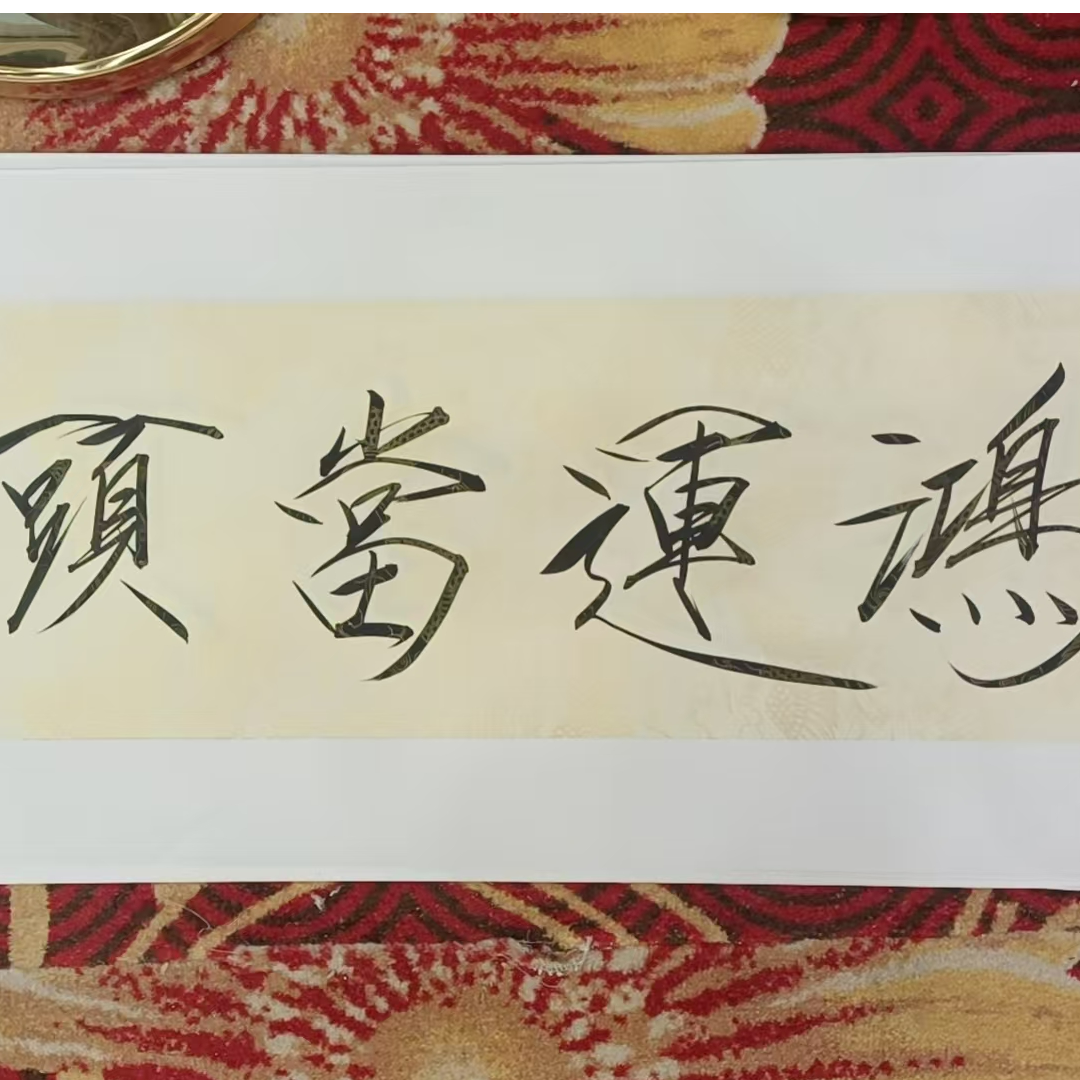 鴻運當頭